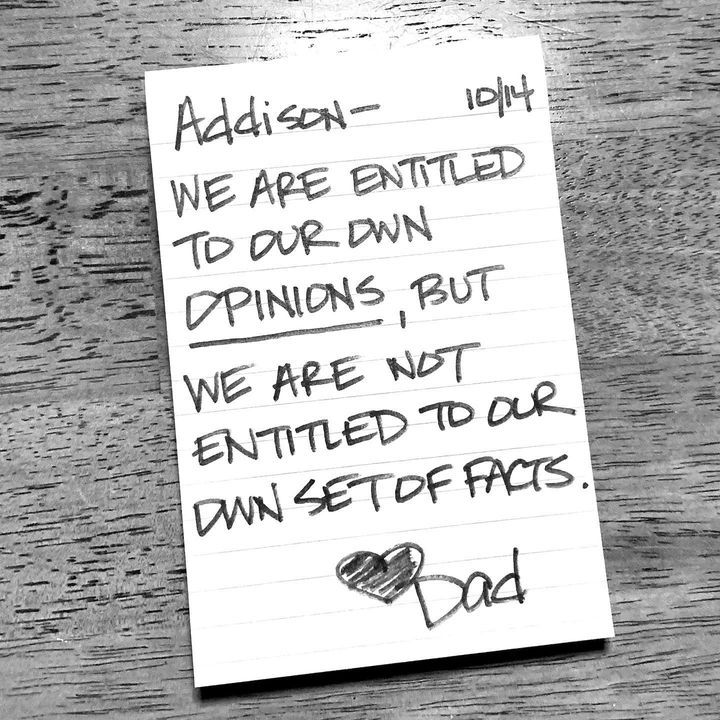 Addison- 10/14
WE ARE ENTITLED
TO OUR OWN
OPINIONS, BUT
WE ARE NOT
ENTITLED TO OUR
OWN SET OF FACTS.
Dad